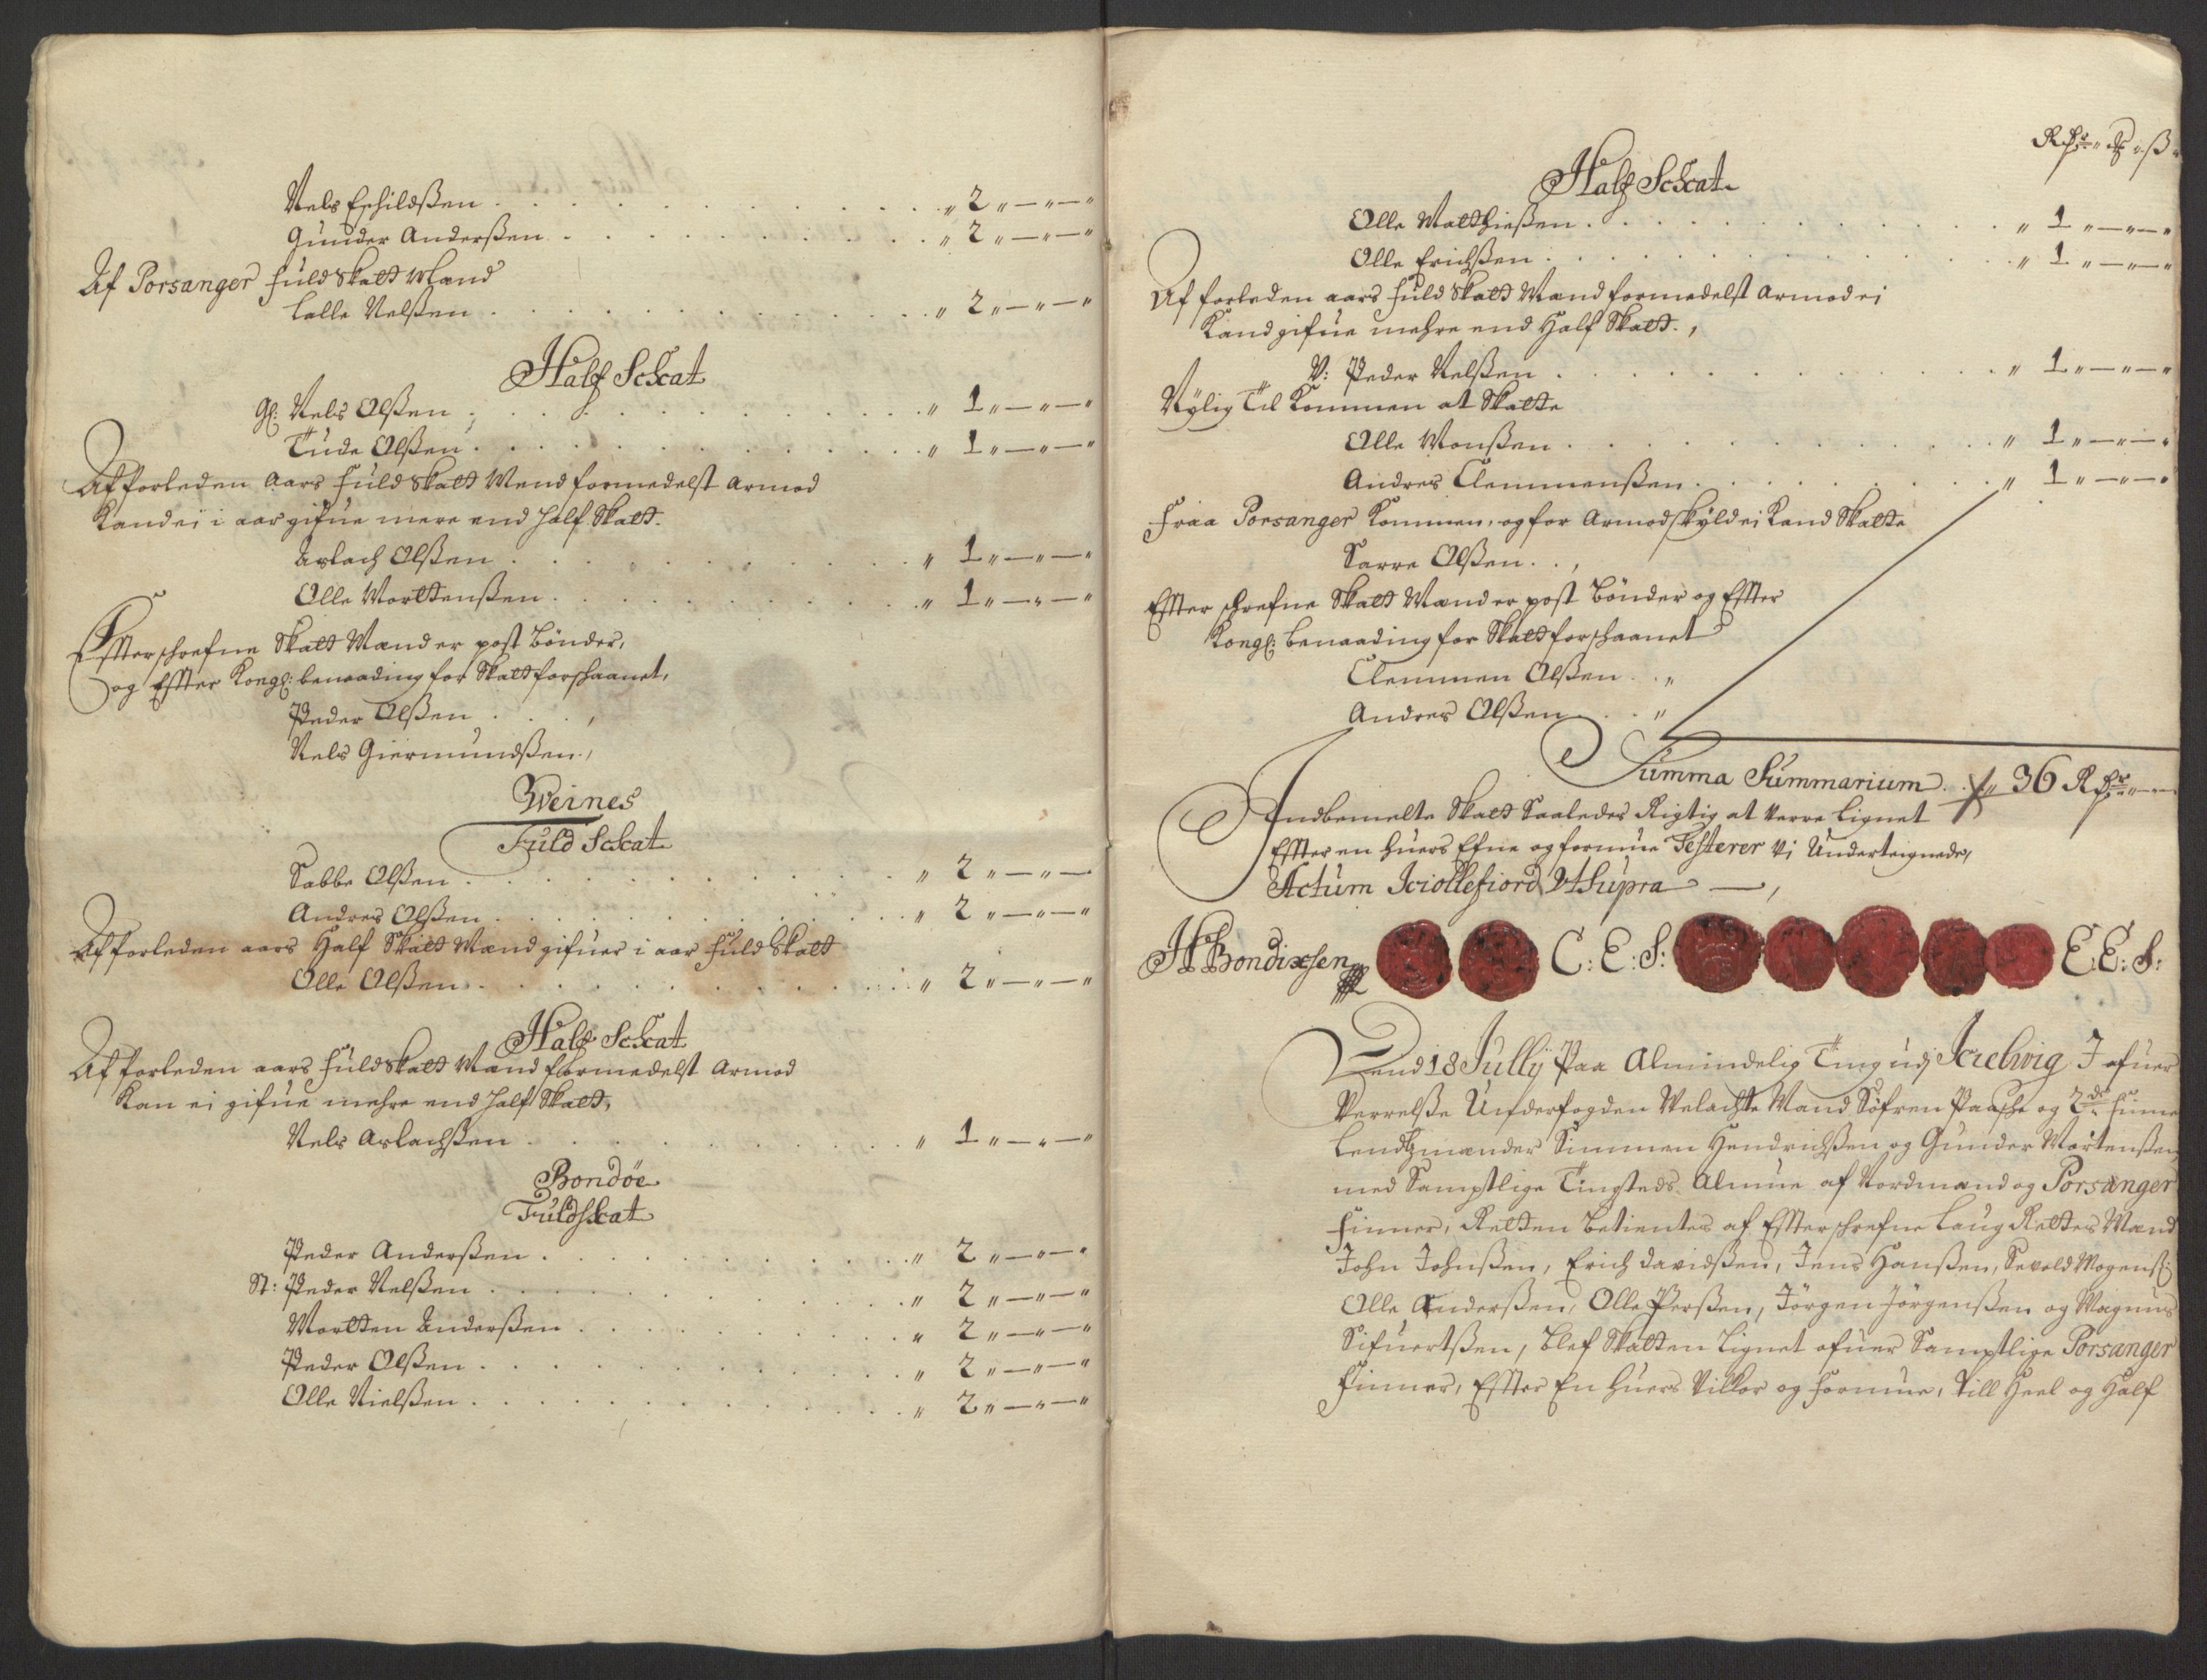 Nels Eschildßen . . . . . . „ 2 „ — „ — „
Gunder Anderßen . . . . . . „ 2 „ — „ — „
Af Porsanger fuld Skatt Mand
Lalle Nelßen . . . . . . „ 2 „ — „ — „
Half Schat
Gl: Nels Olßen . . . . . . „ 1 „ — „ — „
Tude Olßen . . . . . . „ 1 „ — „ — „
Af forleden Aars fuld Skatt Mend formedelst Armod
Kand ei i aar gifue mere end half Skatt.
Aslach Olßen . . . . . . „ 1 „ — „ — „
Olle Morttenßen . . . . . . „ 1 „ — „ — „
Effterschrefne Skatt Mænd er post bönder,
og Effter Kongl: benaading for Skatt forschaanet,
Peder Olßen . . . ,
Nels Giermundßen . ,
Weines
Fuld Schat
Sabbe Olßen . . . . . . „ 2 „ — „ —
Andres Olßen . . . . . . „ 2 „ — „ — „
Af forleden aars Half Skatt Mænd gifuer i aar fuld Skatt
Olle Olßen . . . . . . „ 2 „ — „ — „
Half Schat
Af forleden aars fuld Skatt Mand formedelst Armod
Kan ei gifue mehre end half Skatt,
Nels Aslachßen . . . . . . „ 1 „ — „ — „
Bondöe
Fuldskat
Peder Anderßen . . . . . . „ 2 „ — „ — „
St: Peder Nelßen . . . . . . „ 2 „ — „ — „
Mortten Anderßen . . . . . . „ 2 „ — „ — „
Peder Olßen . . . . . . „ 2 „ — „ — „
Olle Nielßen . . . . . . „ 2 „ — „ — „
Half Schat
Olle Matthießen . . . . . . „ 1 „ — „ — „
Olle Erichßen . . . . . . „ 1 „ — „ — „
Af forleden aars fuld Skatt Mand formedelst Armod ei
Kand gifue mehre end Half Skatt. ,
V: Peder Nelßen . . . . . . „ 1 „ — „ — „
Nÿlig Til Kommen at Skatte
Olle Monßen . . . . . . „ 1 „ — „ — „
Andres Clemmenßen . . . . . . „ 1 „ — „ — „
Fraa Porsanger Kommen, og for Armod skyld ei Kand Skatte
Sarre Olßen . . ,
Effter schrefne Skatt Mænd er post bönder og Effter
Kongl: benaading for Skatt forschaanet
Clemmen Olßen . . „
Andres Olßen . . „
Summa Summarium . . „ 36 Rdr „ — „ —
Indbemelte Skatt Saaledes Rigtig at verre lignet
Effter en huers Efne og formue Testerer vj Underteignede,
Actum Kiollefiord Ut Supra — ,
H Bondixsen C: E: S: E: E: S:
Dend 18 Jullÿ Paa Almindelig Ting udj Kielwig I ofuer
verrelße Underfogden Velachte Mand Söfren Paasche og 2de finne
Lendsmænder Simmen Hendrichßen og Gunder Mortenßen,
med Samptlige Tingsteds Almue af Nordmænd og Porsanger
finner, Retten betientes af Effterschrefne Laug Rettes Mænd
John Johnßen, Erich Davidßen, Jens Hanßen, Sevold Mogenß:
Olle Anderßen, Olle Perßen, Jörgen Jörgenßen og Magnus
Sifuertßen, blef Skatten Lignet ofuer Samptlige Porsanger
finner, Effter En huers Villkor og formue, till Heel og Half